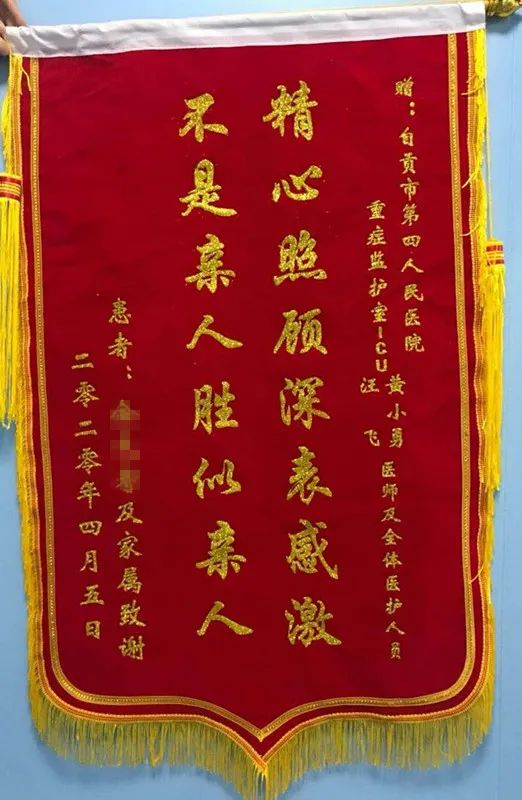 赠：自贡市第四人民医院
重症监护室ICU 黄小勇 汪飞 医师及全体医护人员
精心照顾深表感激
不是亲人胜似亲人
患者：及家属致谢
二零二零年四月五日